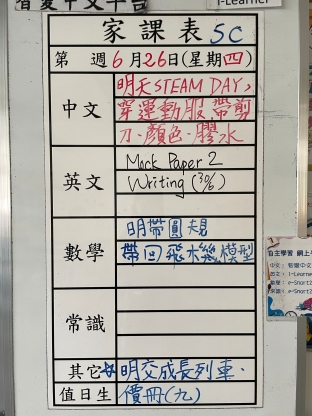 智愛中文平台
i-Learner
家課表 5C
第 週 6月26日(星期四)
中文
明天STEAM DAY,
穿運動服、帶剪
刀、顏色、膠水
英文
Mock Paper 2
Writing (30%)
數學
明帶圓規
帶回飛機模型
常識
其它 明交成長列車、
值日生 價冊(九)
自主學習 網上
中文: 智愛中文
英文: i-Learne
數學: e-Smart2
常識: e-Smart2